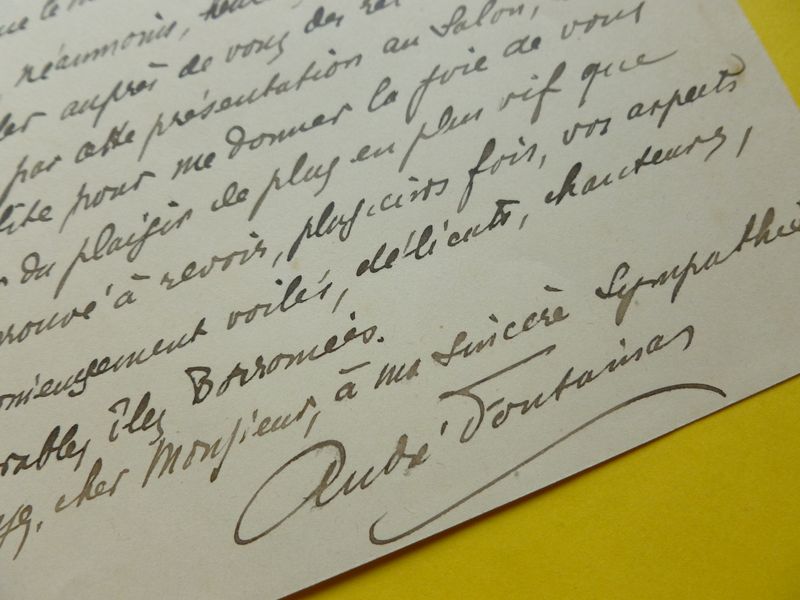 néanmoins,
auprès de vous des
par cette présentation au Salon,
pour me donner la joie de vous
du plaisir de plus en plus vif que
à revoir, plusieurs fois, vos aspects
voilés, délicats, chanteurs,
Îles Borromées.
cher Monsieur, à ma sincère sympathie
André Fontainas